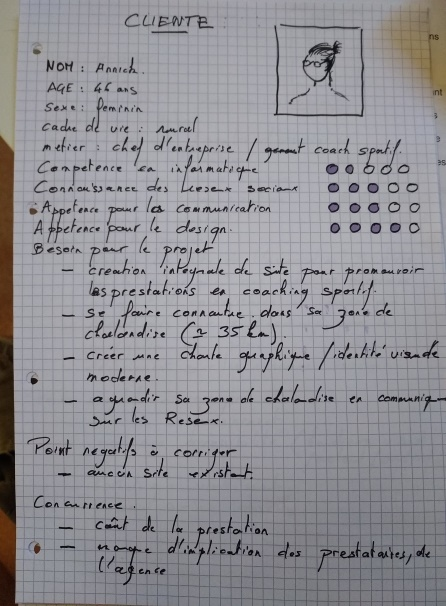 CLIENTE
NOM : Annick.
AGE : 46 ans
Sexe : feminin
cadre de vie : rural
metier : chef d'entreprise / coach sportif.
Competence en informatique
Connaissance des sociaux
Appetence pour la communication
Appetence pour le design.
Besoin pour le projet
– creation integrale de site pour promouvoir
les prestations en coaching sportif.
– se faire connaitre dans sa zone de
chalandise (≈ 35 km).
– creer une charte graphique / identité visuelle
moderne.
– agrandir sa zone de chalandise en communiq-
sur les
Point negatifs à corriger
– aucun site existant.
Concurrence.
– coût de la prestation
– manque d'implication des prestataires, de
l'agence
ns